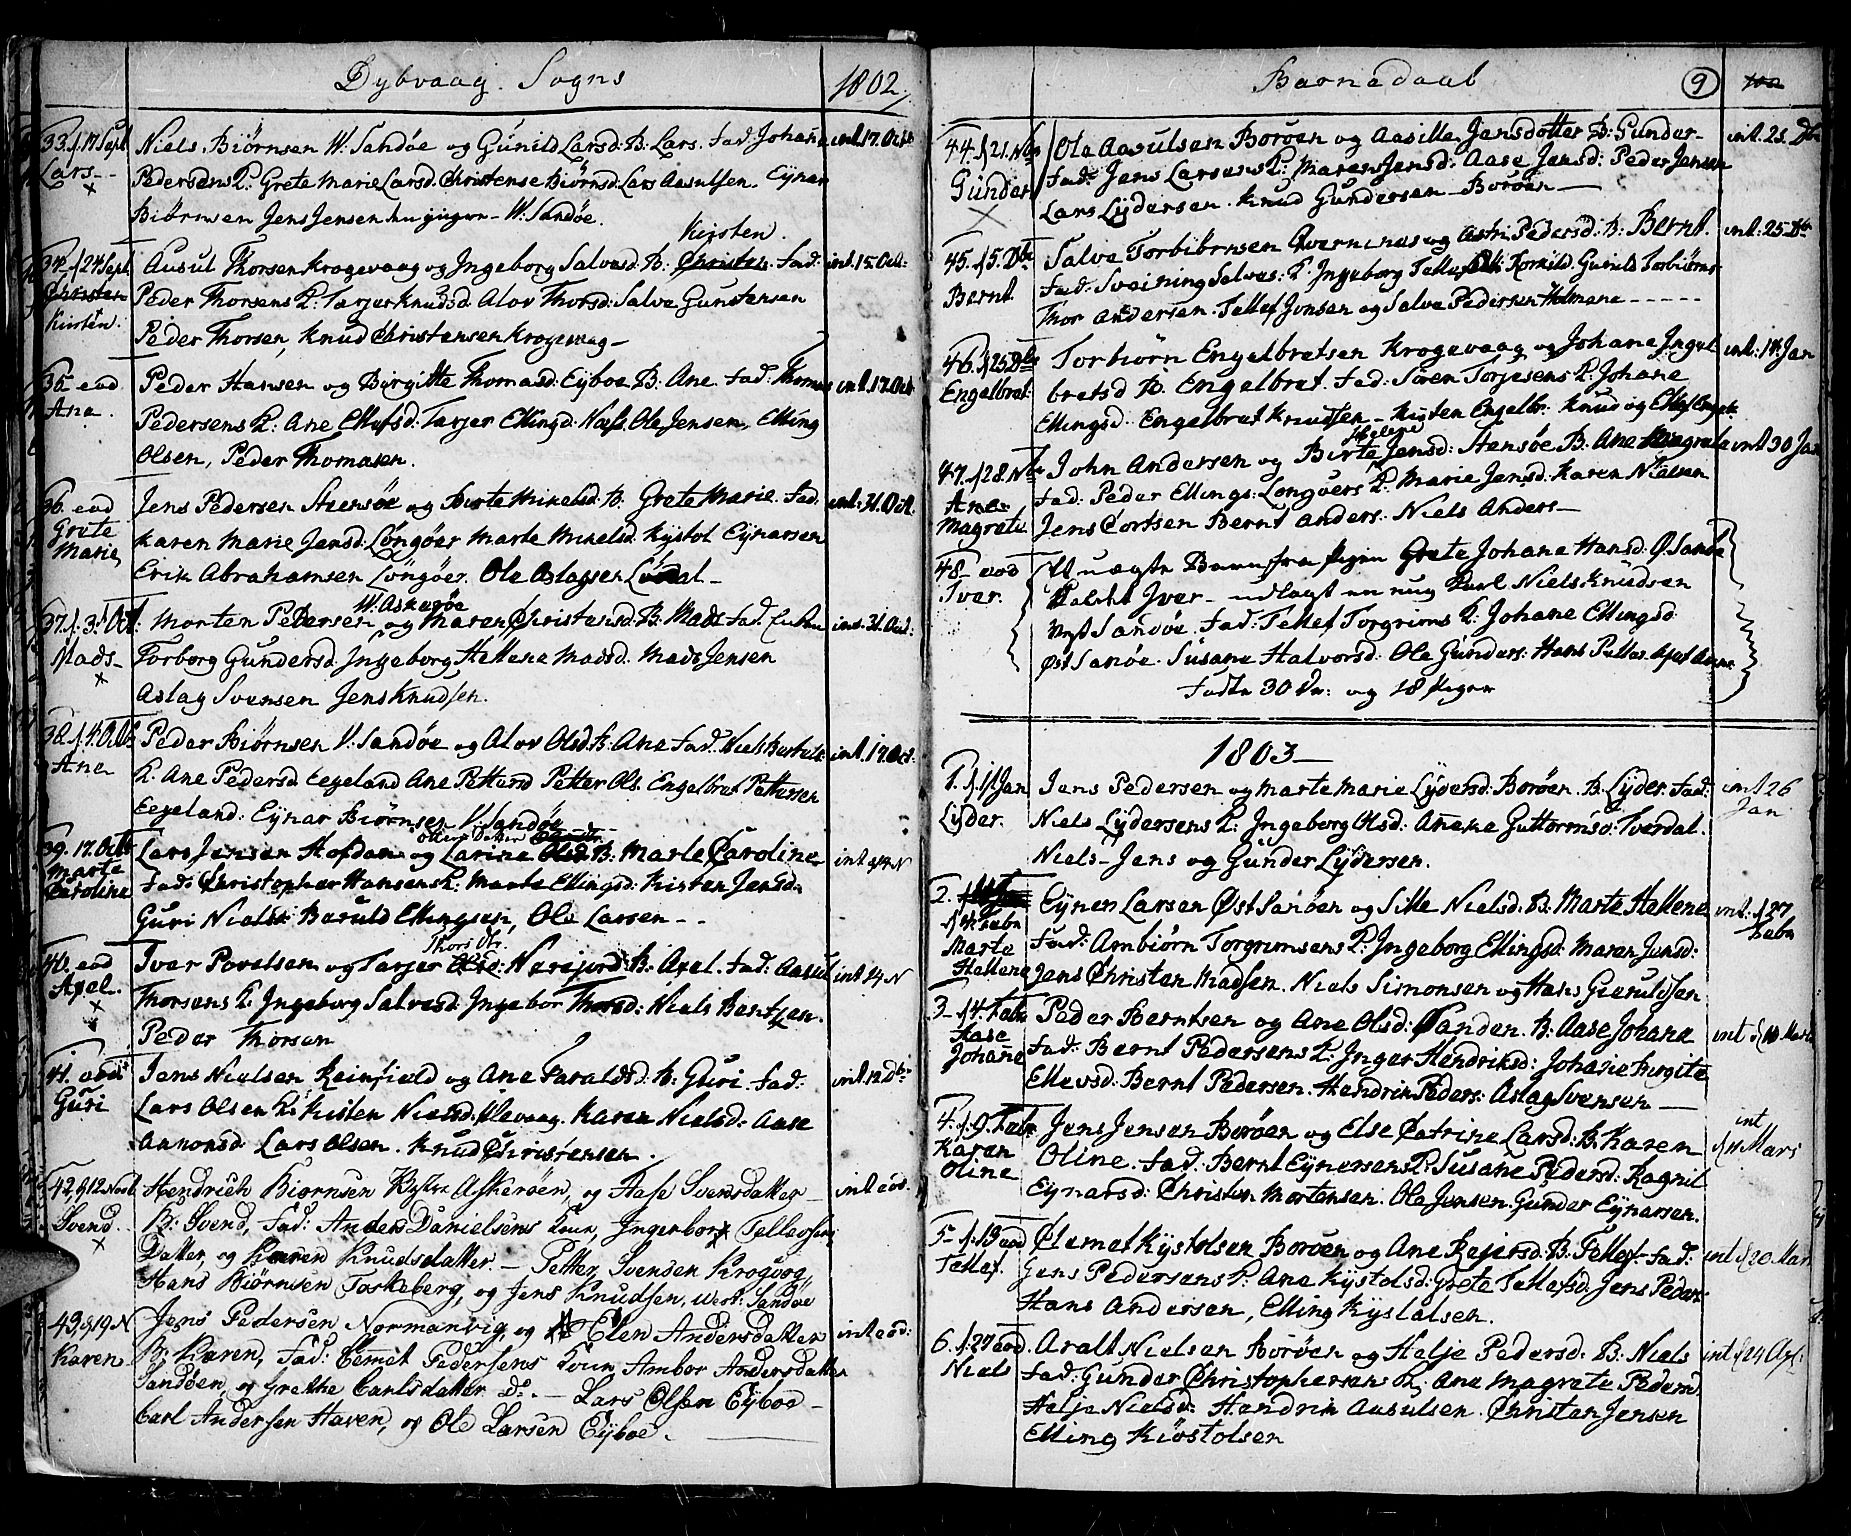 Dybvaag Sogns
1802
33. d 17 Sept
Lars
Niels Biørnsen W. Sandøe og Gunild Larsd: B. Lars. Fad: Johan
Pedersens K: Grete Marie Larsd. Christense Biørnsd: Lars Aasulsen. Eynar
Biørnsen Jens Jensen W. Sandøe.
int. 17. Octb
34 d 24 Sept
Christen
Kirsten.
Kirsten.
Ausul Thorsen Krogevaag og Ingeborg Salvesd: B: Christen Fad:
Peder Thorsens K: Tarjer Knudsd. Alov Thorsd: Salve Gunstensen
Peder Thorsen, Knud Christensen Krogevaag
int. 15. Oct:
35. eod
Ane.
Peder Hansen og Birgitte Thomasd: Eyboe B. Ane. Fad: Thomas
Pedersens K: Ane Ellefsd: Tarjer Ellingd: Næs. Ole Jensen, Elling
Olsen, Peder Thomasen.
int. 17. Oct
36. eod
Grete
Marie
Jens Pedersen Steensøe og Birte Mikelsd: B. Grete Marie. Fad:
Karen Marie Jensd: Longøer Marte Mikelsd: Kystol Eynarsen
Erik Abrahamsen Longøer. Ole Aslagsen
int: 31. Oct.
37. d. 3. Oct.
Mads
W. Askerøe
Morten Pedersen og Maren Christensd: B. Mads Fad.
Torborg Gundersd. Ingeborg Hellene Madsd. Mads Jensen
Aslag Svensen Jens Knudsen.
int. 31. Oct:
38. d 4. Octb
Ane
Peder Biørnsen V. Sandøe og Alov Olsd: B: Ane Fad: Niels
K. Ane Pedersd. Eegeland Ane Petter Petter Ols. Engelbret Pettersen
Eegeland. Eynar Biørnsen V. Sandøe
int. 17. Oct:
39. 17. Octb
Marte
Caroline
Lars Jensen Hofdan og Larine Olsd B. Marte Caroline
Fad: Christopher Hansens K: Marte Ellingsd: Kirsten Jensd:
Guri Niels: Baruld Ellingsen, Ole Larsen
int 14 N
40. eod
Axel.
Thors dtr.
Iver Povelsen og Tarjer Olsd: Næsgjerd: B: Axel. Fad: Aasul
Thorsens K: Ingeborg Salvesd: Ingebor Thorsd: Niels Bentsen.
Peder Thorsen
int 14 N
41. eod
Guri
Jens Nielsen Reinfield og Ane Haraldsd: B: Guri Fad:
Lars Olsen K: Kisten Nielsd: Klevaag. Karen Nielsd: Aase
Aanonsd: Lars Olsen. Knud Christensen.
int. 12. Dbr
42, d 12 Novb
Svend.
Hendrich Biørnsen Vestre Askerøen, og Aase Svensdatter
B: Svend, Fad: Anders Danielsens Kone, Ingerbor Tellevsens
Datter, og Karen Knudsdatter. – Petter Svensen Krogvog
Hans Biørnsen Toskeberg, og Jens Knudsen, West: Sandøe
int eod.
43, d 19 N
Karen
Jens Pedersen Normanvig, og Elen Andersdatter
B: Karen, Fad: Clemet Pedersens Kone Ambor Andersdatter
Sandøen, og Grethe Carlsdatter Do. – Lars Olsen Eyboe –
Carl Andersen Haven, og Ole Larsen Eyboe.
int eod:
Barnedaab
9
44. d 21. Nov
Gunder
Ole Aasulsen Borøen og Aasille Jensdotter B: Gunder
Fad: Jens Larsens K: Maren Jensd: Aase Jensd: Peder Jensen
Lars Lydersen. Knud Gundersen – Borøen
int 25. Dbr
45. d 5. Dbr
Bernt.
Salve Torbiørnsen Qverninæs og Astri Pedersd: B: Bernt.
Fad: Svenning Salves: K. Ingeborg Tellefsd: Gunild Torbiørns
Thor Andersen. Tellef Jonsen og Salve Pedersen Holmane
int. 25 Dbr
46. d 25 Dbr
Engelbret
Torbiørn Engelbretsen Krogevaag og Johane Ingel
bretsd B. Engelbret. Fad: Søren Torjesens K. Johane
Ellingsd. Engelbret Knudsen – Kisten Engelbr. Knud og Ellef Engelb
int: 14 Jan
47. d 28. Nbr
Ane
Magrete
Helene
John Andersen og Birte Jensd: Stensøe B. Ane Magrete
Fad: Peder Ellings: Longøers K. Marie Jensd: Karen Nielsen
Jens Cortsen Bernt Anders: Niels Anders
int 30 Jan
48 – eod
Iver.
Et uægte Barn fra Pigen Grete Johane Hansd: Ø. Sandøe
kaldet Iver – udlagt en ung Karl Niels Knudsen
Vest Sandøe. Fad: Tellef Torgrims K. Johane Ellingsd
Øst Sanøe. Susane Halvorsd. Ole Gunders: Hans
Fødte 30 Dr: og 18 Piger
1803
1. d. 1 Jan
Lyder.
Jens Pedersen og Marte Marie Lydersd: Borøen. B. Lyder. Fad:
Niels Lydersens K: Ingeborg Olsd: Aneke Guttormsd: Tverdal.
Niels – Jens og Gunder Lydersen.
int 26
Jan
2.
d 4 Febr
Marte
Hellene
Eyner Larsen Øst Sanøen og Sille Nielsd: B: Marte Hellene
Fad: Arnbiørn Torgrimsens K: Ingeborg Ellingsd: Maren Jensd:
Jens Christen Madsen. Niels Simonsen og Hans Gieruldsen
int: d 27
Febr
3 – d 4. Febr
Aase
Johane
Peder Berntsen og Ane Olsd: Sanden. B: Aase Johane
Fad: Bernt Pedersens K: Inger Hendriksd: Johane Birgite
Ellevsd: Bernt Pedersen. Hendrik Peders: Aslag Svensen
int d 10 Marti
4. d. 9. Febr
Karen
Oline
Jens Jensen Borøen og Else Catrine Larsd: B. Karen
Oline. Fad: Bernt Eynersens K: Susane Pedersd: Ragnil
Eynarsd: Christen Mortensen. Ole Jensen. Gunder Eynarsen.
int
d 11 Mari
5 – d. 19 eod
Tellef.
Clemet Kystolsen Borøen og Ane Reiersd: B. Tellef. Fad:
Jens Pedersens K: Ane Kystolsd: Grete Tellefsd. Jens Peders:
Hans Andersen, Elling Kystolsen.
int d 20. Mar
6. d. 27 eod.
Niels
Aralt Nielsen Borøen og Helje Pedersd: B. Niels
Fad: Gunder Christophersens K, Ane Magrete Pedersd.
Helje Nielsd. Hendrik Aasulsen. Christen Jensen
Elling Kiøstolsen
int d 24 Apl: